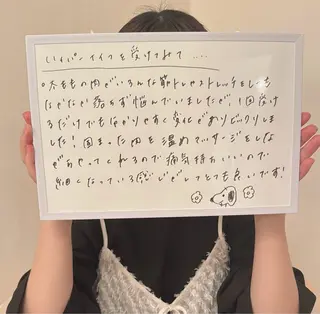 ハイパーナイフを受けてみて....
○太ももの肉がいろんな筋トレやストレッチをしても
なかなか落ちず悩んでいましたが、1回受け
るだけでもわかりやすく変化がありビックリしま
した！固まった肉を温めマッサージをしな
がらやってくれるので痛気持ちいいので
細くなっている感じがしてとても良いです！